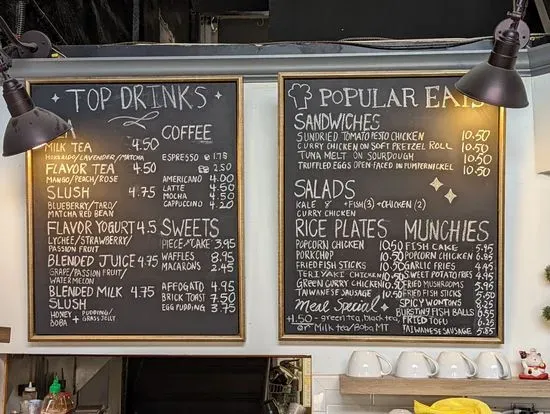 TOP DRINKS
MILK TEA 4.50
HOKKAIDO/LAVENDER/MATCHA
FLAVOR TEA 4.50
MANGO/PEACH/ROSE
SLUSH 4.75
BLUEBERRY/TARO/
MATCHA RED BEAN
FLAVOR YOGURT 4.5
LYCHEE/STRAWBERRY/
PASSION FRUIT
BLENDED JUICE 4.75
GRAPE/PASSION FRUIT/
WATERMELON
BLENDED MILK 4.75
SLUSH
HONEY + PUDDING/
BOBA GRASS JELLY
COFFEE
ESPRESSO 1.75
2.50
AMERICANO 4.00
LATTE 4.50
MOCHA 4.50
CAPPUCCINO 4.20
SWEETS
PIECE OF CAKE 3.95
WAFFLES 8.95
MACARONS 2.45
AFFOGATO 4.95
BRICK TOAST 7.50
EGG PUDDING 3.75
POPULAR EATS
SANDWICHES
SUNDRIED TOMATO PESTO CHICKEN 10.50
CURRY CHICKEN ON SOFT PRETZEL ROLL 10.50
TUNA MELT ON SOURDOUGH 10.50
TRUFFLED EGGS OPEN-FACED ON PUMPERNICKEL 10.50
SALADS
KALE 8 +FISH(3) +CHICKEN (2)
CURRY CHICKEN
RICE PLATES
POPCORN CHICKEN 10.50
PORKCHOP 10.50
FRIED FISH STICKS 10.50
TERIYAKI CHICKEN 10.50
GREEN CURRY CHICKEN 10.50
TAIWANESE SAUSAGE 10.50
Meal Special
+1.50 - green tea, black tea,
or Milk tea/Boba MT
MUNCHIES
FISH CAKE 5.95
POPCORN CHICKEN 6.95
GARLIC FRIES 4.95
SWEET POTATO FRIES 4.95
FRIED MUSHROOMS 5.95
FRIED FISH STICKS 5.50
SPICY WONTONS 8.25
BURSTING FISH BALLS 6.55
FRIED TOFU 6.25
TAIWANESE SAUSAGE 5.85